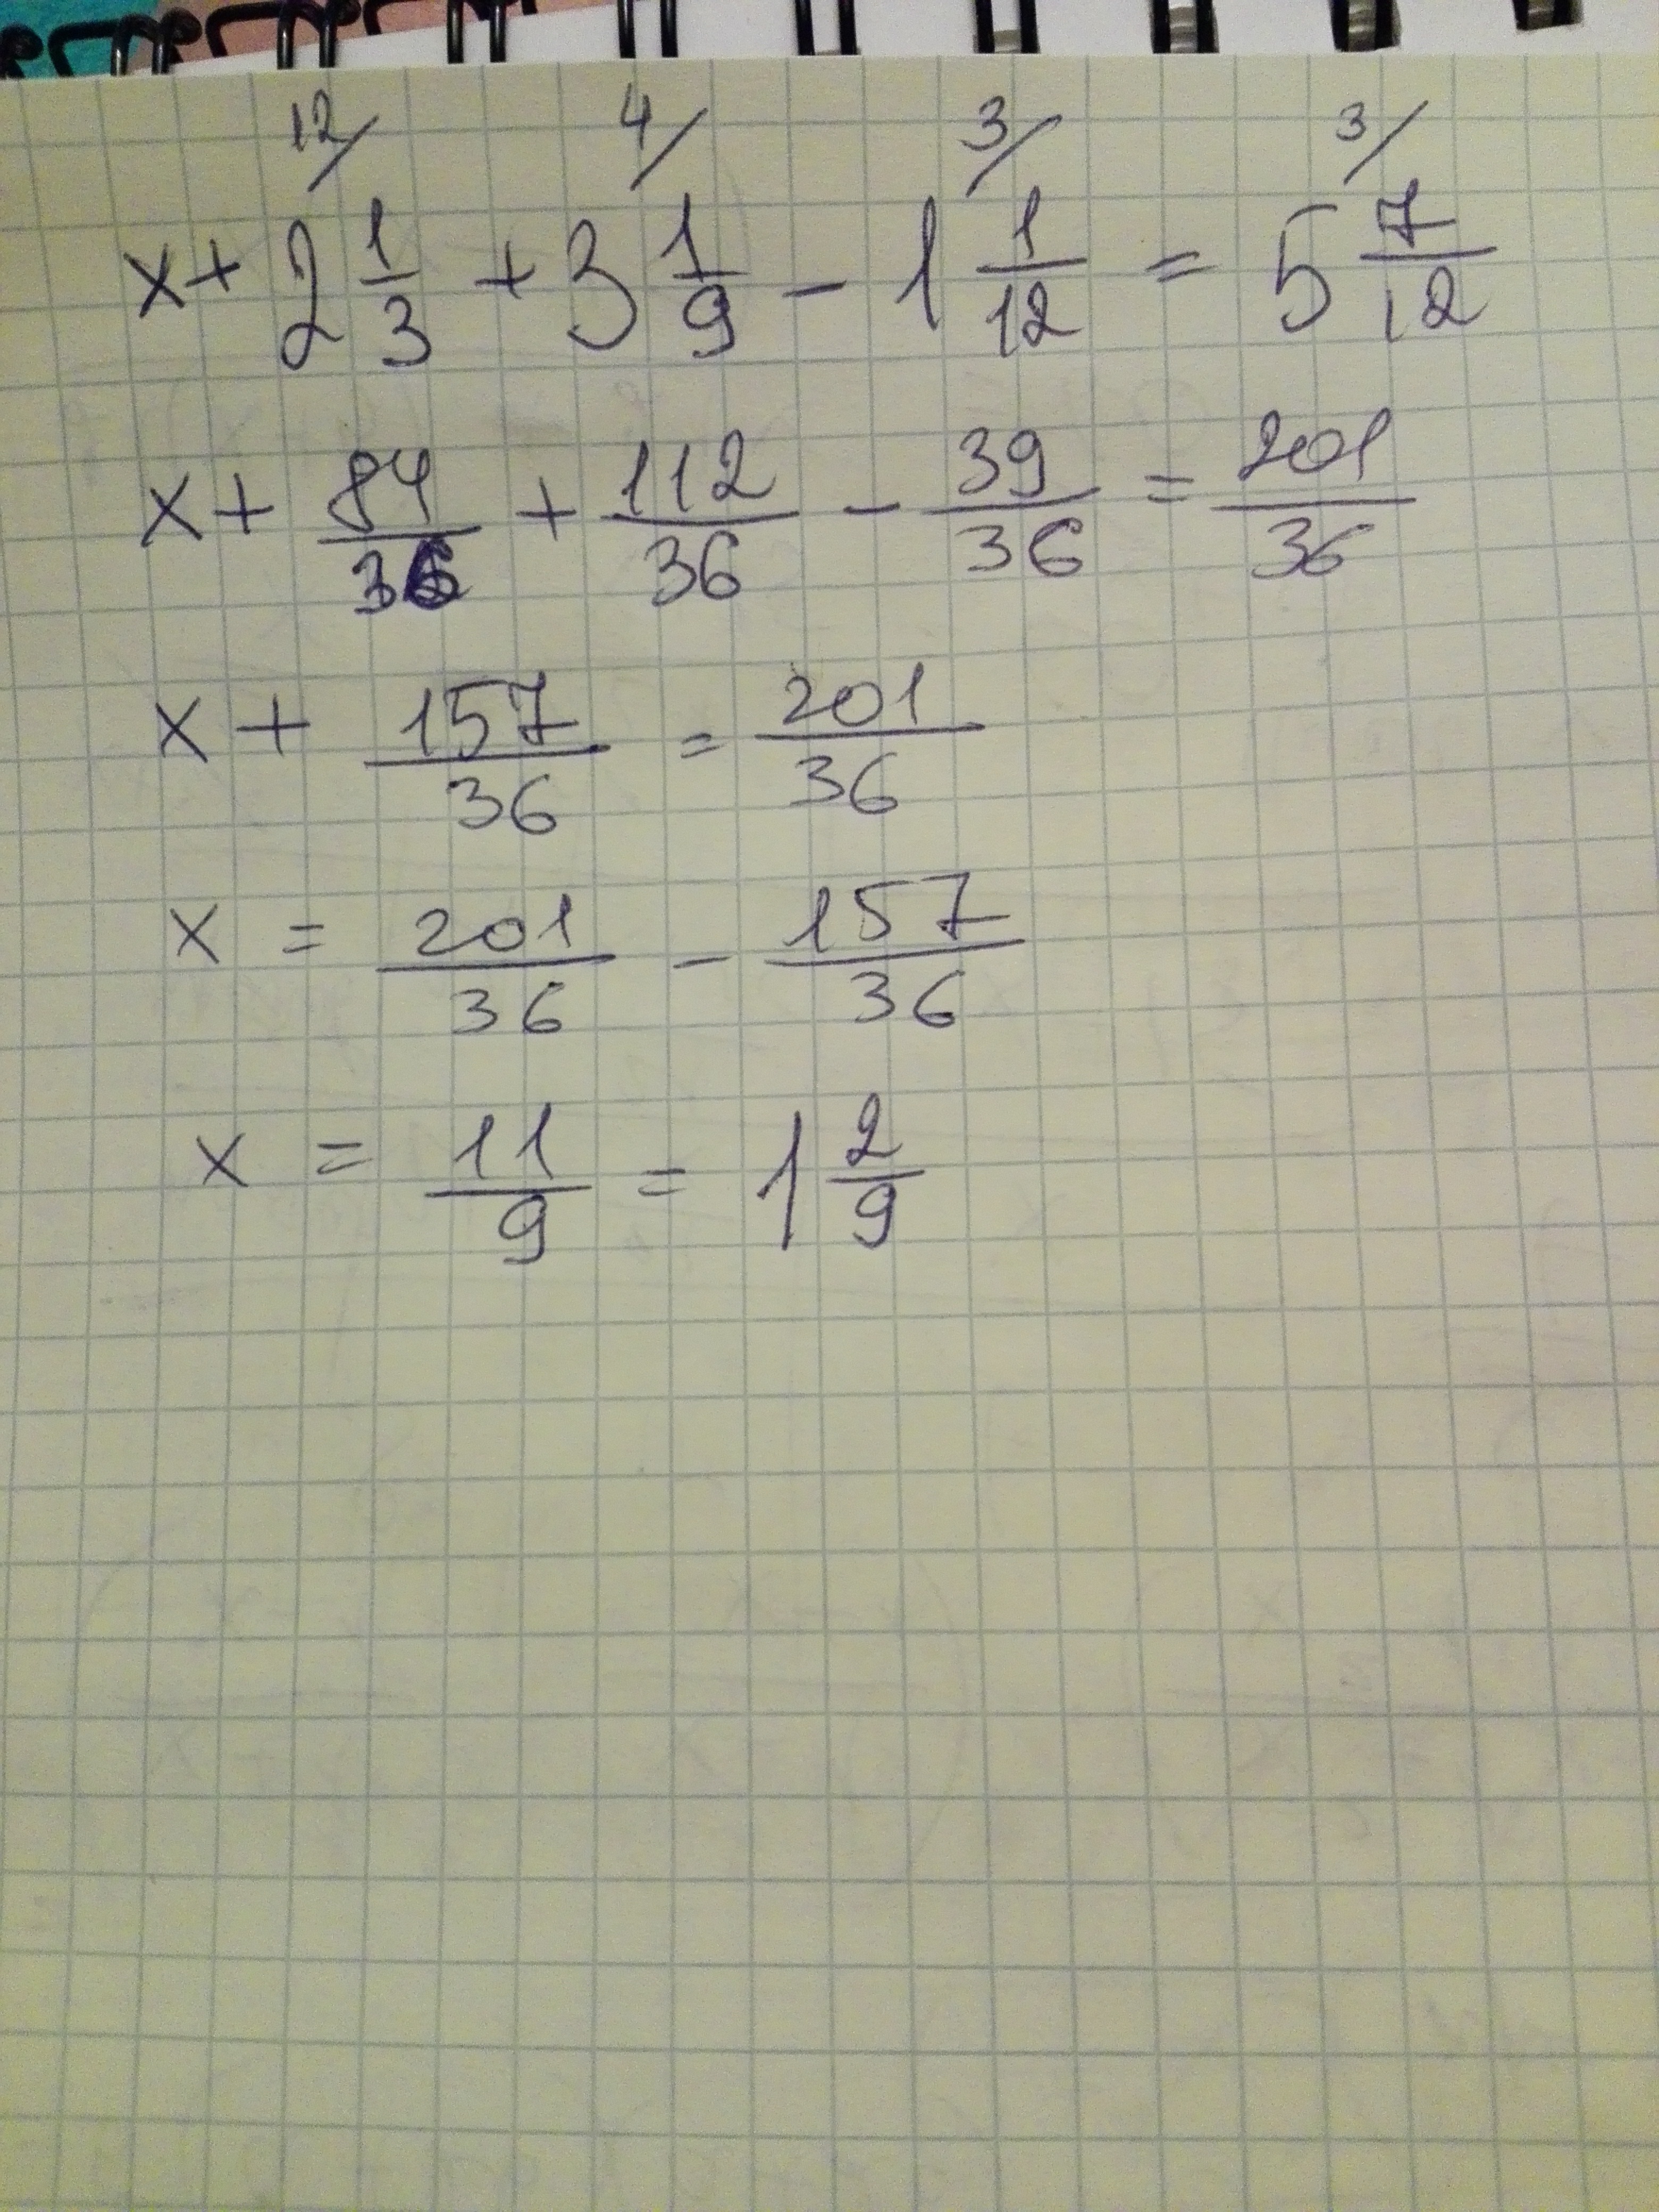 12/ 4/ 3/ 3/
x + 2 1/3 + 3 1/9 - 1 1/12 = 5 7/12
x + 84/36 + 112/36 - 39/36 = 201/36
x + 157/36 = 201/36
x = 201/36 - 157/36
x = 11/9 = 1 2/9